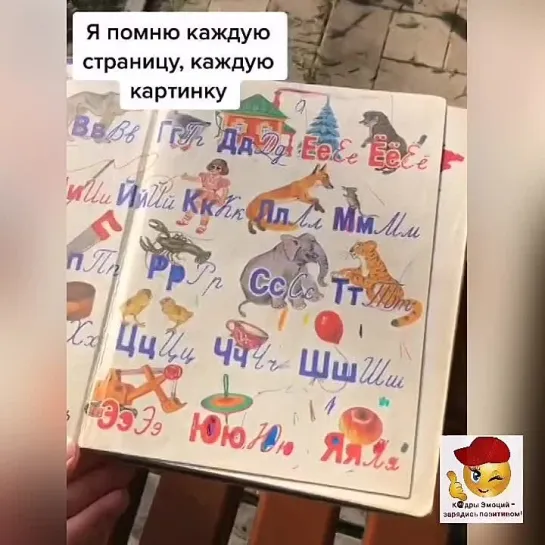 Я помню каждую
страницу, каждую
картинку
Вв Вв Гг Гг Дд Дд Ее Ее Ёё Ёё
Ии Йй Йй Кк Кк Лл Лл Мм Мм
п Пп Рр Рр Сс Сс Тт Тт
Хх Цц Цц Чч Чч Шш Шш
Ээ Ээ Юю Юю Яя Яя
К@дры Эмоций -
зарядись позитивом!